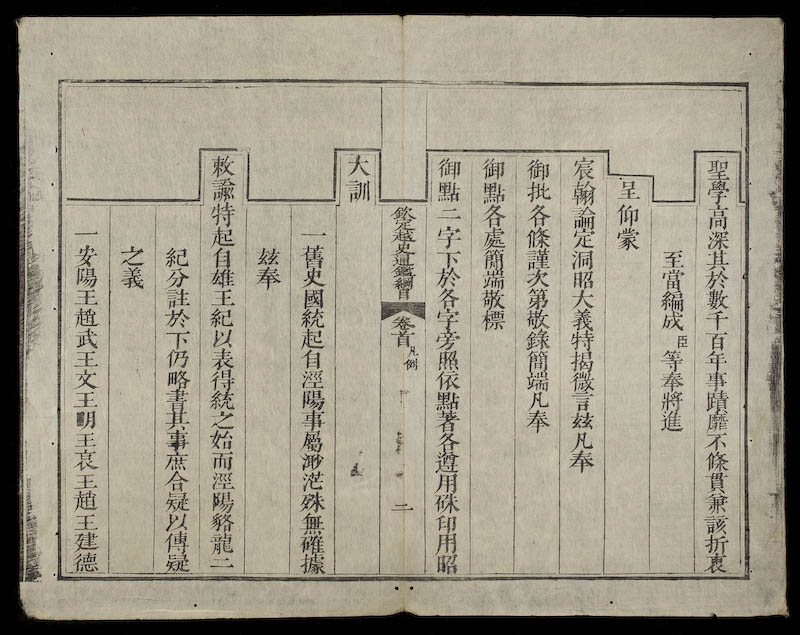 聖學高深其於數千百年事蹟靡不條貫兼該折衷
至當編成臣等奉將進
呈仰蒙
宸翰論定洞昭大義特揭微言茲凡奉
御批各條謹次第敬錄簡端凡奉
御點各處簡端敬標
御點二字下於各字旁照依點著各遵用硃印用昭
欽定越史通鑑綱目 卷首 凡例 二
大訓
一舊史國統起自涇陽事屬渺茫殊無確據
茲奉
敕諭特起自雄王紀以表得統之始而涇陽貉龍二
紀分註於下仍略書其事庶合疑以傳疑
之義
一安陽王趙武王文王明王哀王趙王建德